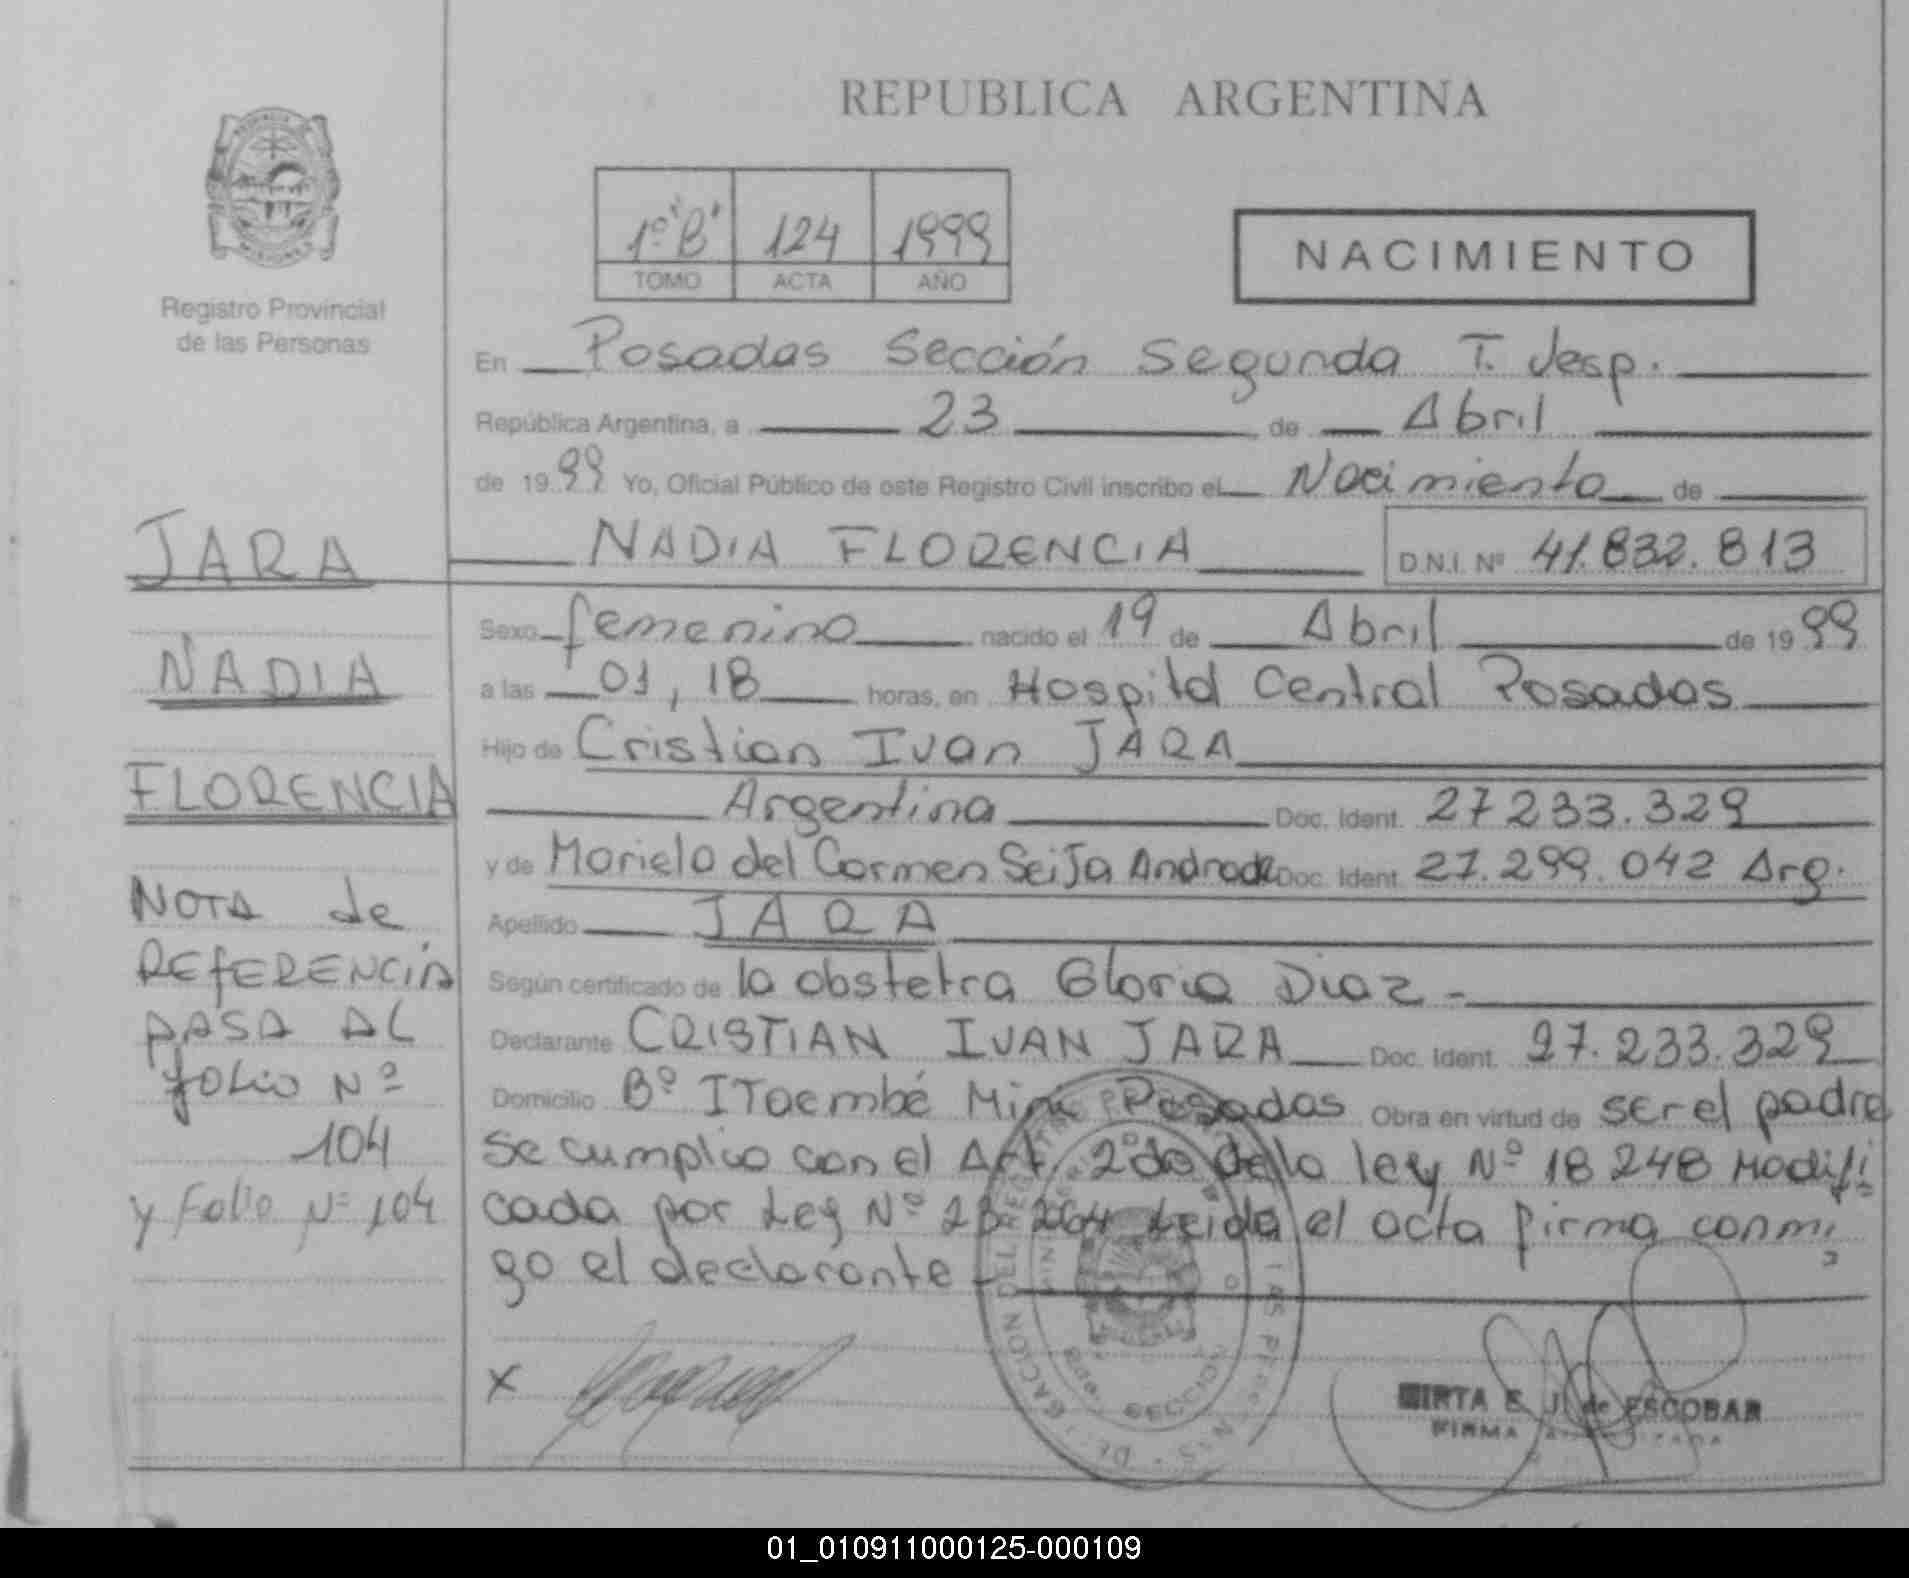 REPUBLICA ARGENTINA
1º "B" 124 1999
TOMO ACTA AÑO
NACIMIENTO
Registro Provincial
de las Personas
En Posadas Sección Segunda T. Vesp.
República Argentina, a 23 de Abril
de 1999 Yo, Oficial Público de este Registro Civil inscribo el Nacimiento de
NADIA FLORENCIA D.N.I. Nº 41.832.813
Sexo femenino nacido el 19 de Abril de 1999
a las 01,18 horas, en Hospital Central Posadas
Hijo de Cristian Ivan JARA
Argentina Doc. Ident. 27 233.329
y de Mariela del Carmen Seija Andrade Doc. Ident. 27.299.042 Arg.
Apellido JARA
Según certificado de la obstetra Gloria Diaz -
Declarante CRISTIAN IVAN JARA Doc. Ident. 27.233.329
Domicilio Bº ITaembé Mini Posadas Obra en virtud de ser el padre
se cumplio con el Art. 2º do de la ley Nº 18 248 Modifi
cada por Ley Nº 23 264 Leida el acta firma conmi
go el declarante -
x
MIRTA E. J. de ESCOBAR
FIRMA AUTORIZADA
JARA
NADIA
FLORENCIA
NOTA de
REfERENCIA
PASA AL
folio Nº
104
y Folio Nº 104
01_010911000125-000109